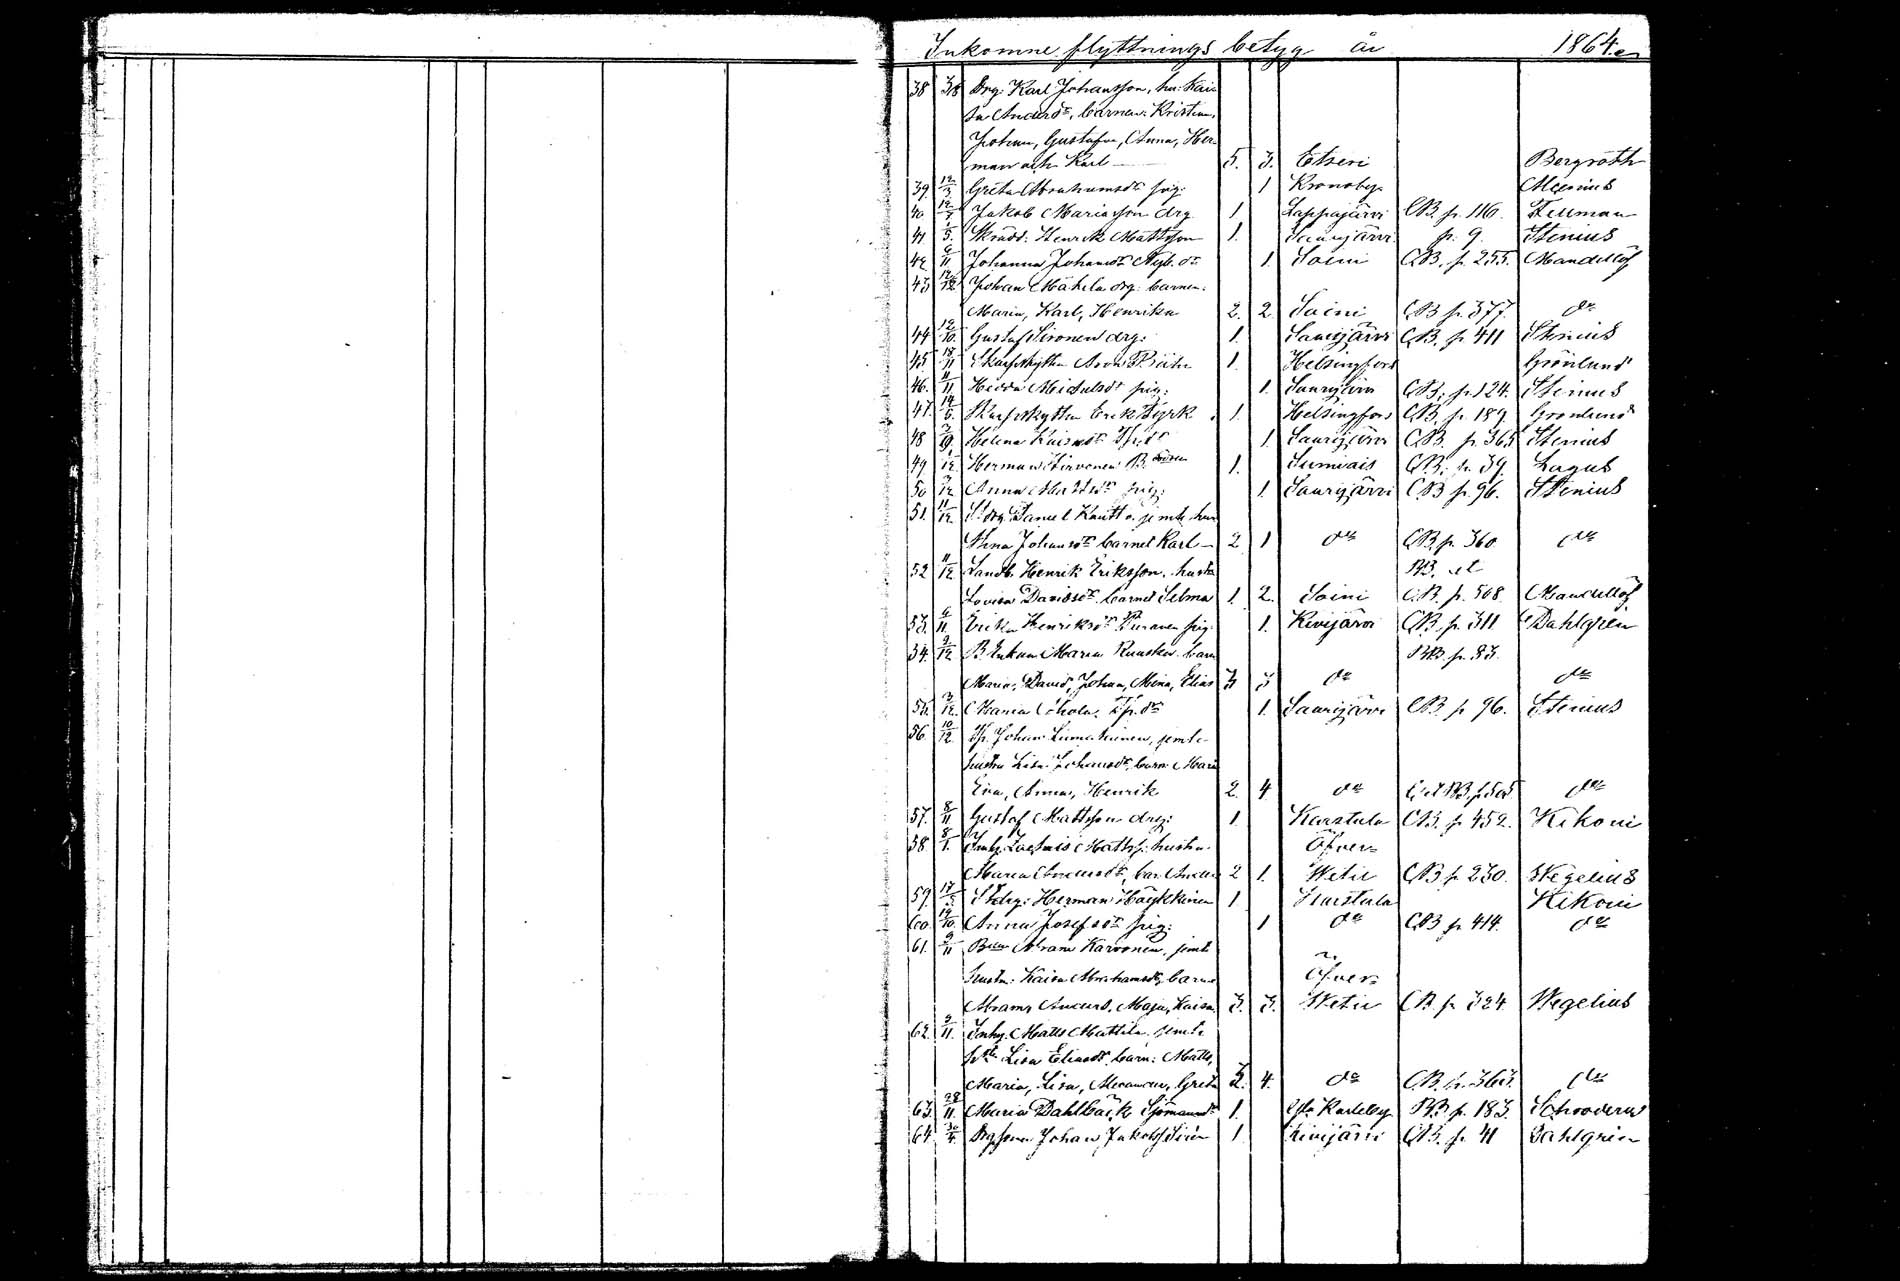 Inkomne flyttnings betyg år 1864.
38 Drg: Karl Johansson, hu: Kai-
sa Andersdr, barnen: Kristina,
Johan, Gustafva, Anna, Her-
man och Karl — 5. 3. Etseri Bergroth
39. 12/3 Greta Abrahamsdr pig: 1 Kronoby
40 Jakob Mariasson drg 1 Lappajärvi CB. p. 116. Fellman
41 Skrädd: Henrik Mattsson 1. Saarijärvi p. 9 Stenius
42 6/11 Johanna Johansdr 1. Soini CB. p. 255. Mandellöf
43 Johan Mähelä drg: barnen:
Maria, Karl, Henrika 2. 2. Soini CB p. 377. do
44 12/10. Gustaf Sironen drg: 1. Saarijärvi CB. p. 411 Stenius
45 18/11 Skarpskytten 1. Helsingfors Grönlund
46. 11/11 Hedda Michelsdr pig: 1. Saarijärvi CB; p. 124. Stenius
47. 14/5. Skarpskytten Erik Byrk 1. Helsingfors CB. p. 189. Grönlund
48 Helena Kaisasdr 1. Saarijärvi CB. p. 365 Stenius
49 Herman Hirvonen B. sonen 1. Sumiais CB; p. 39. Lagus
50 Anna Mattsdr pig: 1. Saarijärvi CB p. 96. Stenius
51. 11/12 St drg Daniel Knutt o. jemte hu
Stina Johansdr barnet Karl — 2 1 do CB. p. 360. do
52 11/12 Landb. Henrik Eriksson, hustr BB. et
Lovisa Davidsdr, barnet Selma 1. 2. Soini C.B. p. 508. Mandellöf
53. 6/11. Erika Henriksdr Piiranen pig: 1. Kivijärvi CB. p. 311 Dahlgren
54. 9/12 B. Enkan Maria Ruuska. barn BB. p. 83.
Maria, David, Johan, Mina, Elias 3 3 do do
55. 3/12. Maria Ahola. 1. Saarijärvi CB p 96. Stenius
56. 10/12 Johan Liimatainen, jemte
hustru Lisa Johansdr, barn: Maria
Eva, Anna, Henrik 2. 4 do do
57. 8/11 Gustaf Mattsson drg: 1 Karstula CB. p 452. Kikoni
58. 8/1. Inhy. Mattss. hustru Öfver-
Maria Andersdr, bar. Anders 2 1. Wetil CB p 230. Wegelius
59. St drg: Herman Häykkinen 1 Karstula Kikoni
60. 19/10. Anna Josefsdr pig: 1 do CB p 414. do
61. 9/11 Abram Karvonen, jemte
hustru: Kaisa Abrahamsdr, barne Öfver-
Abram, Anders, Maja, Kaisa 3. 3. Wetil CB. p 324 Wegelius
62. 9/11. Inhy. Matts Mattila, jemte
Lisa Eliasdr. barn: Matts,
Maria, Lisa, Alexander, Greta 3. 4. do CB. p. 363. do
63. 28/11. Maria Dahlbäck Sjömansdr 1. Gla Karleby BB p. 183.
64. 30/4. Johan Jakobs 1 Kivijärvi CB. p. 41 Dahlgren